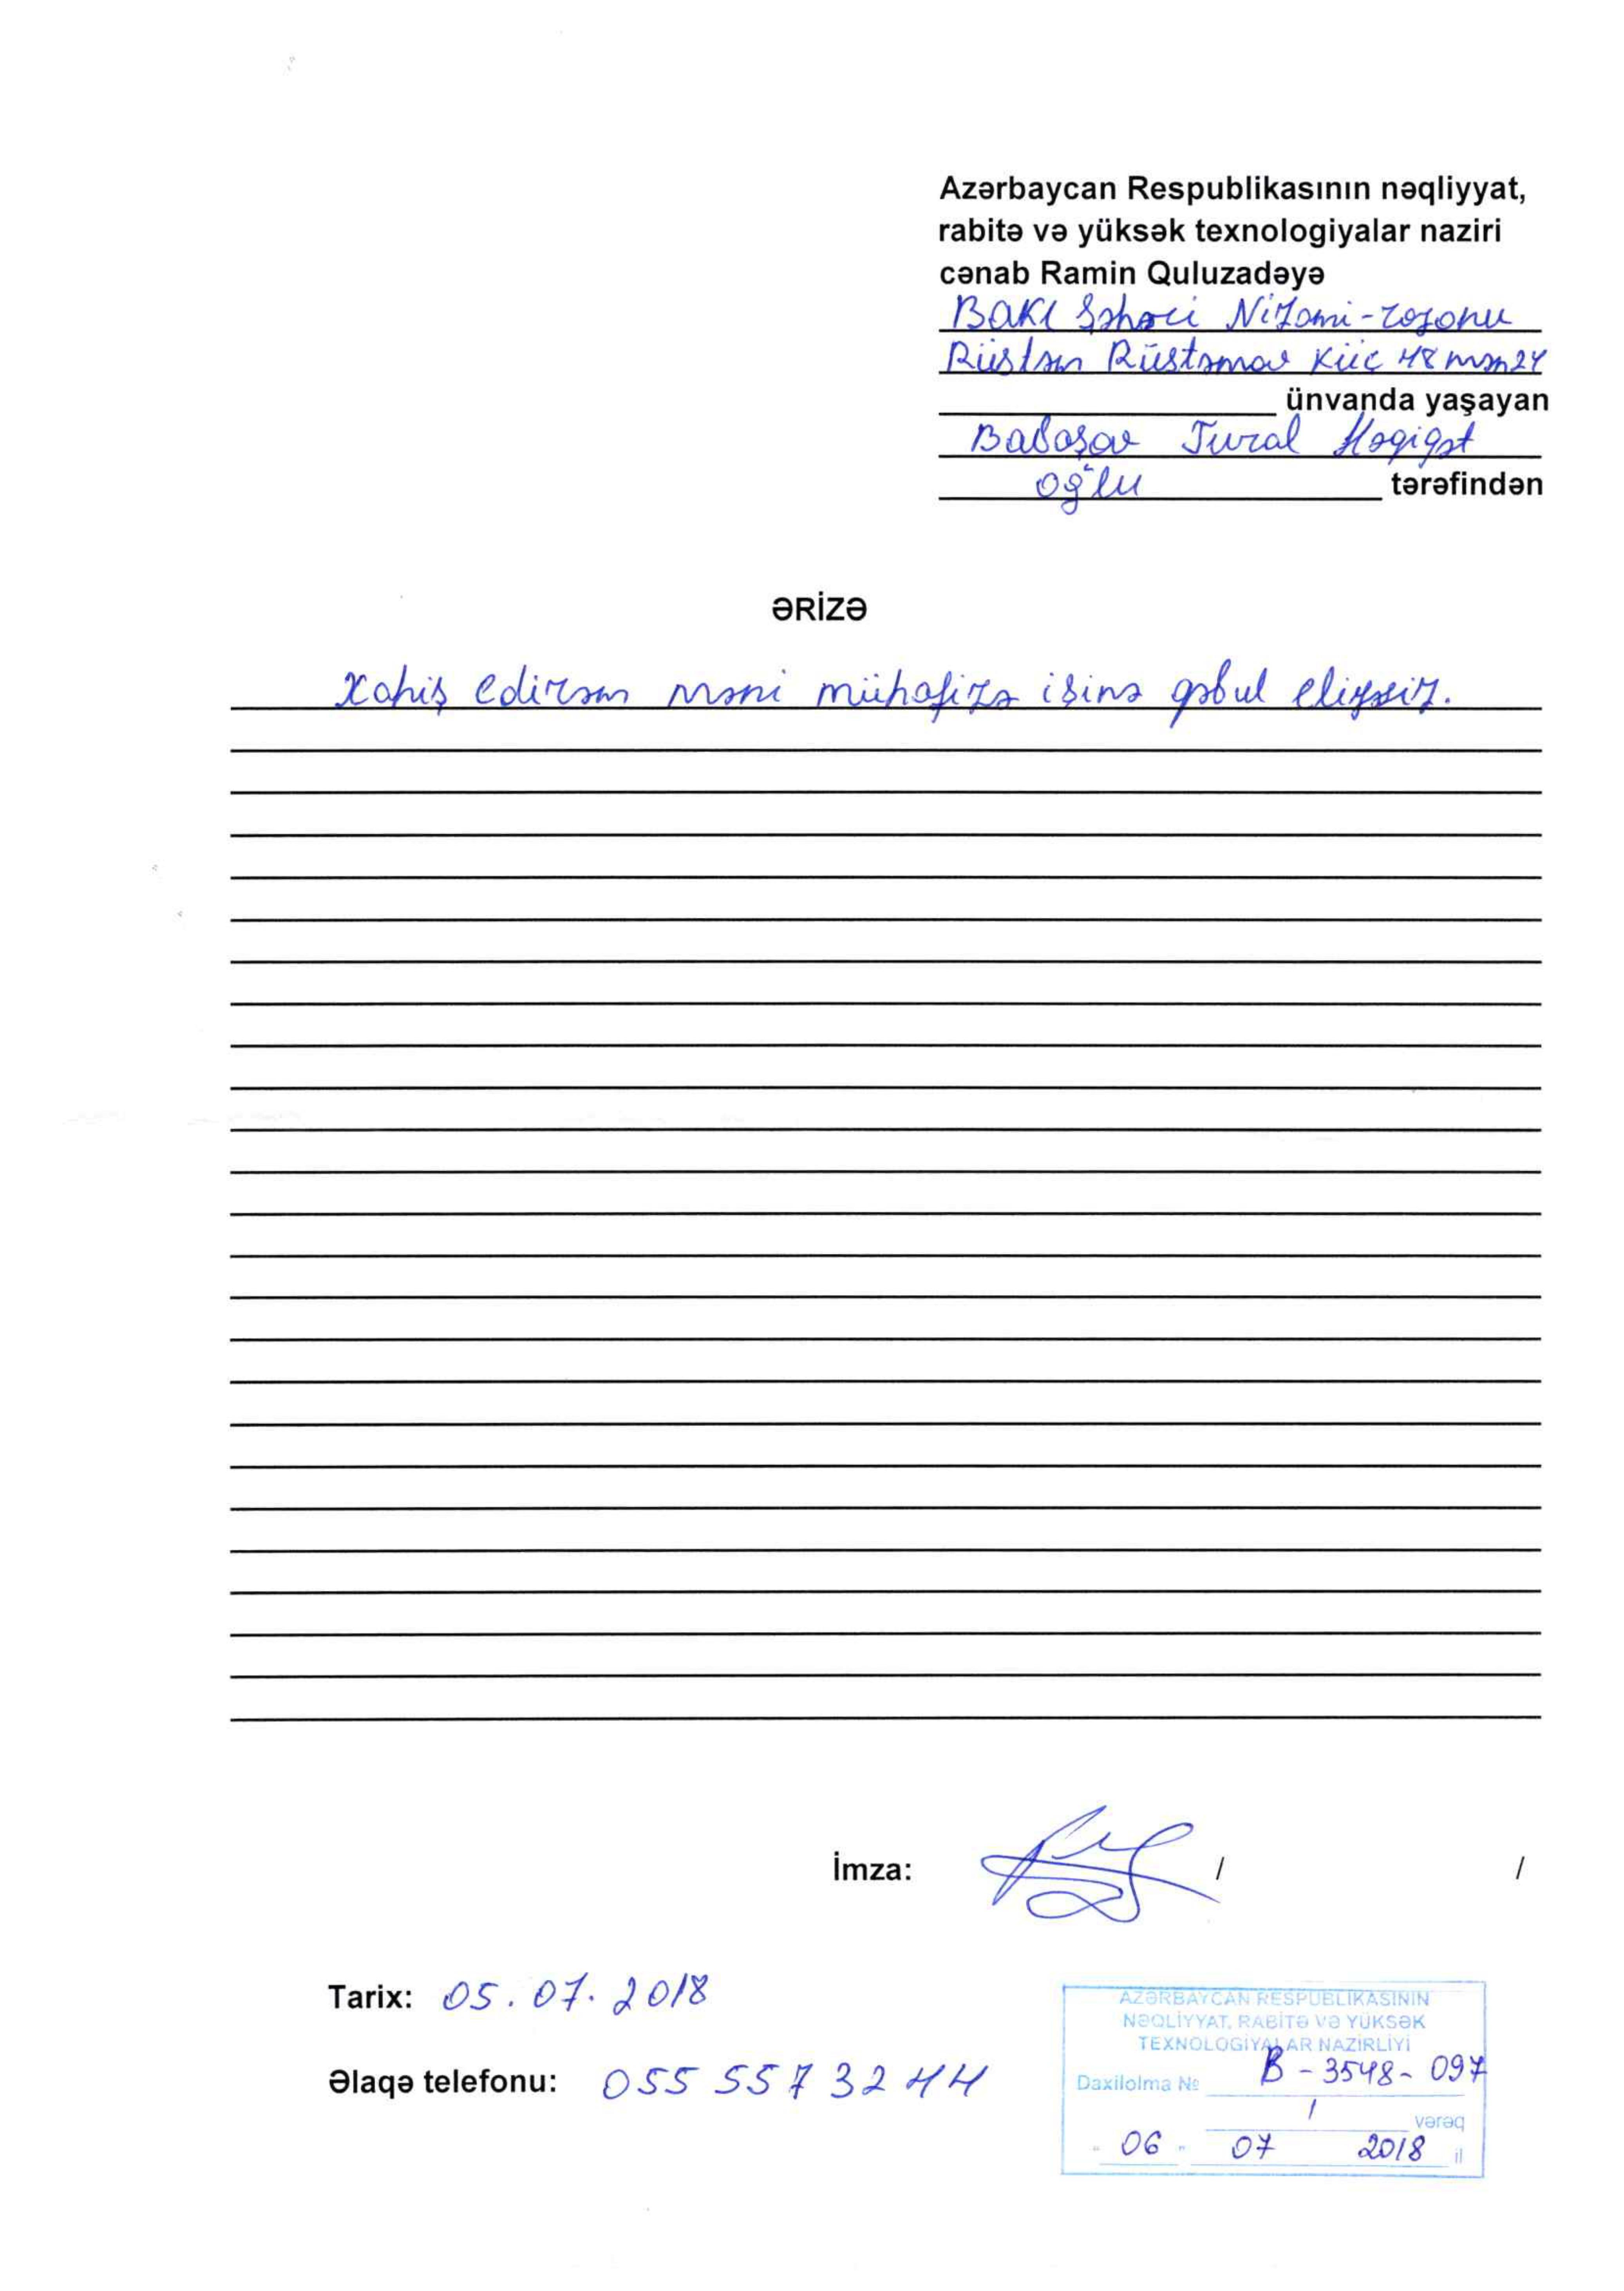 Azərbaycan Respublikasının nəqliyyat,
rabitə və yüksək texnologiyalar naziri
cənab Ramin Quluzadəyə
Bakı Şəhəri Nizami-rayonu
Rüstəm Rüstəmov Küç 48 mən 24
ünvanda yaşayan
Babaşov Tural Həqiqət
oğlu tərəfindən
ƏRİZƏ
Xahiş edirəm məni mühafizə işinə qəbul eliyəsiz.
İmza: / /
Tarix: 05.07.2018
Əlaqə telefonu: 055 557 32 44
AZƏRBAYCAN RESPUBLİKASININ
NƏQLİYYAT, RABİTƏ VƏ YÜKSƏK
TEXNOLOGİYALAR NAZİRLİYİ
Daxilolma № B-3548-097
1 vərəq
" 06 " 07 2018 il